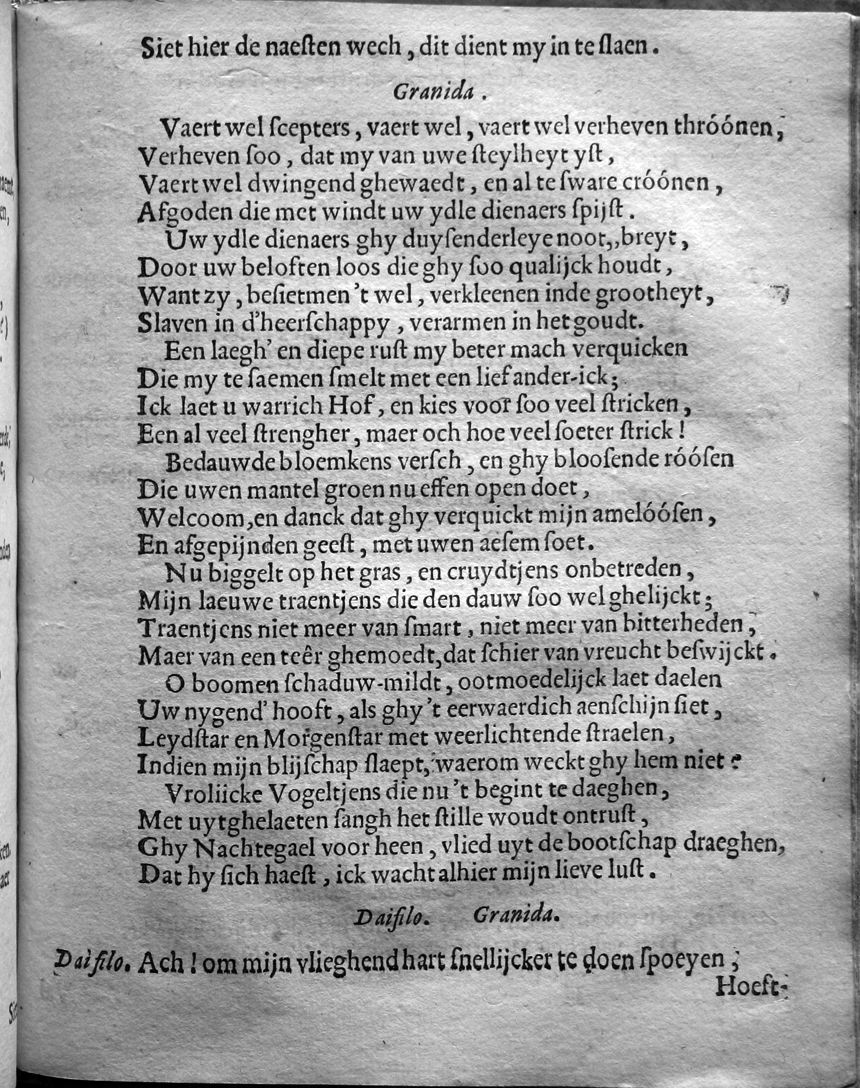 Siet hier de naeſten wech, dit dient my in te ſlaen.
Granida.
Vaert wel ſcepters, vaert wel, vaert wel verheven thróónen,
Verheven ſoo, dat my van uwe ſteylheyt yſt,
Vaert wel dwingend ghewaedt, en al te ſware cróónen,
Afgoden die met windt uw ydle dienaers ſpijſt.
Uw ydle dienaers ghy duyſenderleye noot,,breyt,
Door uw beloften loos die ghy ſoo qualijck houdt,
Want zy, beſietmen 't wel, verkleenen inde grootheyt,
Slaven in d'heerſchappy, verarmen in het goudt.
Een laegh' en diepe ruſt my beter mach verquicken
Die my te ſaemen ſmelt met een lief ander-ick;
Ick laet u warrich Hof, en kies voor ſoo veel ſtricken,
Een al veel ſtrengher, maer och hoe veel ſoeter ſtrick!
Bedauwde bloemkens verſch, en ghy blooſende róóſen
Die uwen mantel groen nu effen open doet,
Welcoom,en danck dat ghy verquickt mijn amelóóſen,
En afgepijnden geeſt, met uwen aeſem ſoet.
Nu biggelt op het gras, en cruydtjens onbetreden,
Mijn laeuwe traentjens die den dauw ſoo wel ghelijckt;
Traentjens niet meer van ſmart, niet meer van bitterheden,
Maer van een teêr ghemoedt,dat ſchier van vreucht beſwijckt.
O boomen ſchaduw-mildt, ootmoedelijck laet daelen
Uw nygend' hooft, als ghy 't eerwaerdich aenſchijn ſiet,
Leydſtar en Morgenſtar met weerlichtende ſtraelen,
Indien mijn blijſchap ſlaept, waerom weckt ghy hem niet?
Vroliicke Vogeltjens die nu 't begint te daeghen,
Met uytghelaeten ſangh het ſtille woudt ontruſt,
Ghy Nachtegael voor heen, vlied uyt de bootſchap draeghen,
Dat hy ſich haeſt, ick wacht alhier mijn lieve luſt.
Daiſilo. Granida.
Daiſilo. Ach! om mijn vlieghend hart ſnellijcker te doen ſpoeyen;
Hoeft